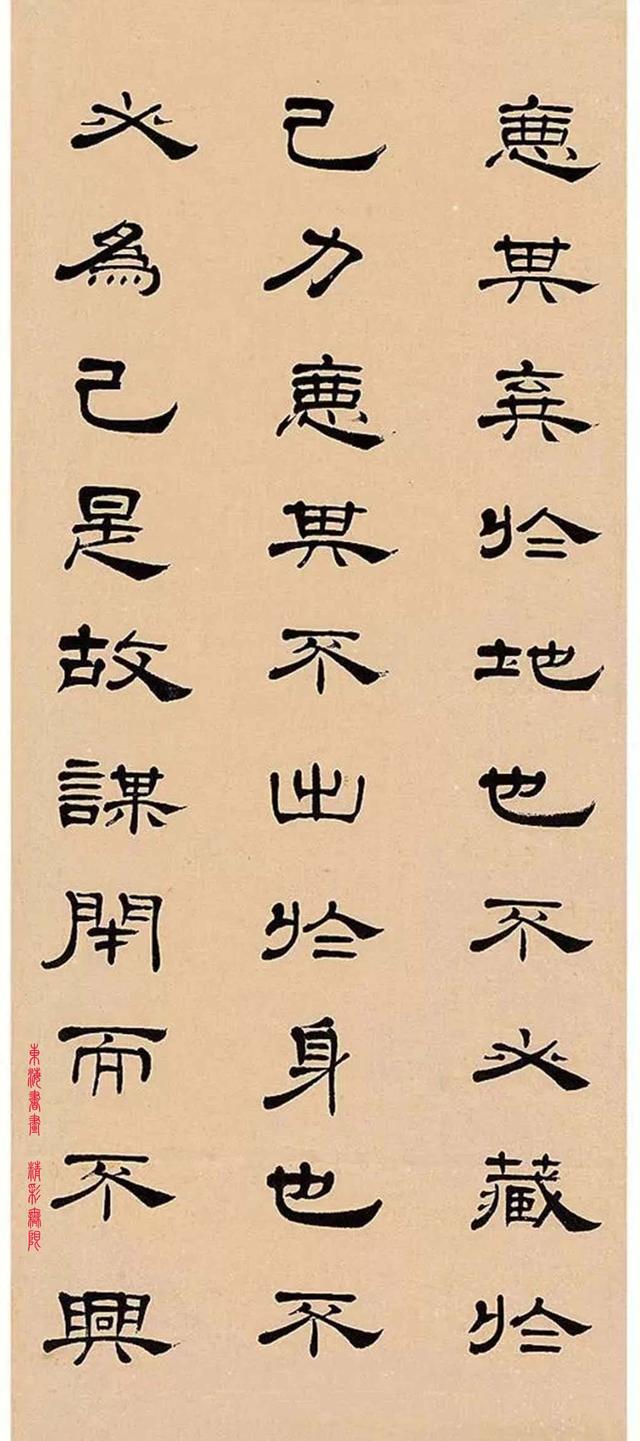 惡其弃於地也不必藏於
己力惡其不出於身也不
必為己是故謀閉而不興
東海書畫 精彩無限